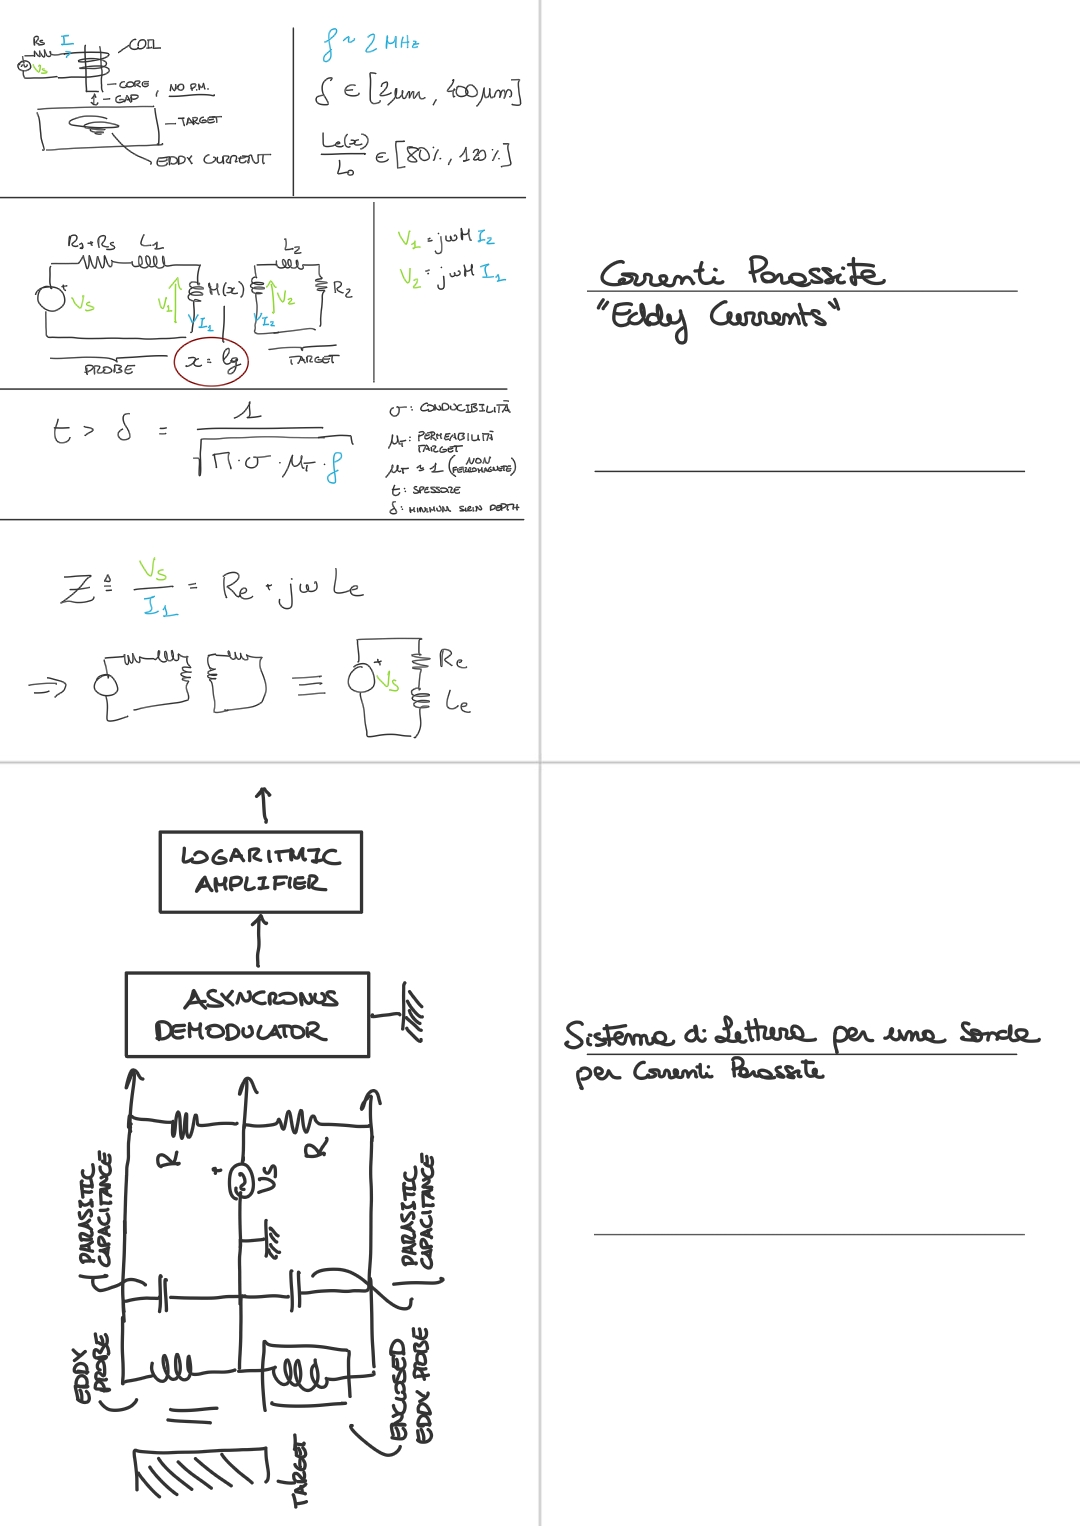 Rs I
COIL
Vs
CORE, NO P.M.
GAP
TARGET
EDDY CURRENT
f ~ 2 MHz
δ ∈ [2μm, 400μm]
Le(x)/L0 ∈ [80%, 120%]
R1+Rs L1
L2
Vs V1 M(x) V2 R2
I1 I2
x = lg
PROBE
TARGET
V1 = jωM I2
V2 = jωM I1
t > δ = 1/√(π·σ·μT·f)
σ: CONDUCIBILITÀ
μT: PERMEABILITÀ
TARGET
μT ≈ 1 (NON
FERROMAGNETE)
t: SPESSORE
δ: MINIMUM SKIN DEPTH
Z ≜ Vs/I1 = Re + jω Le
⇒ ≡ Vs Re
Le
Correnti Parassite
"Eddy Currents"
LOGARITMIC
AMPLIFIER
ASYNCRONUS
DEMODULATOR
R R
Vs
PARASITIC
CAPACITANCE
PARASITIC
CAPACITANCE
EDDY
PROBE
ENCLOSED
EDDY PROBE
TARGET
Sistema di Lettura per una Sonda
per Correnti Parassite